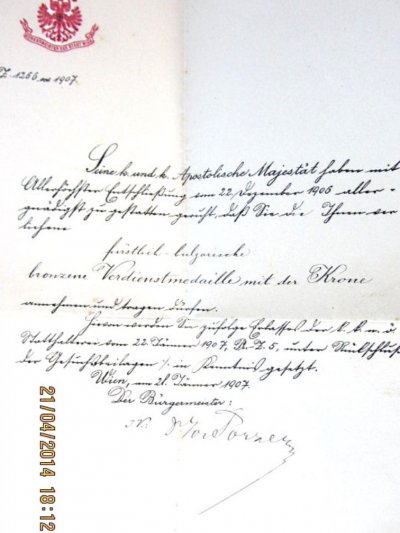 BÜRGERMEISTER DER STADT WIEN
Z. 1266 ex 1907.
Seine k. und k. Apostolische Majestät haben mit
Allerhöchster Entschließung vom 22. Dezember 1906 aller-
gnädigst zu gestatten geruht, daß Sie die Ihnen ver-
liehene
fürstlich-bulgarische
bronzene Verdienstmedaille mit der Krone
annehmen und tragen dürfen.
Hievon werden Sie zufolge Erlasses der k. k. n. ö.
Statthalterei vom 22. Jänner 1907, Z. 5, unter Rückschluß
der Gesuchsbeilagen in Kenntnis gesetzt.
Wien, am 21. Jänner 1907.
Der Bürgermeister:
21/04/2014 18:12